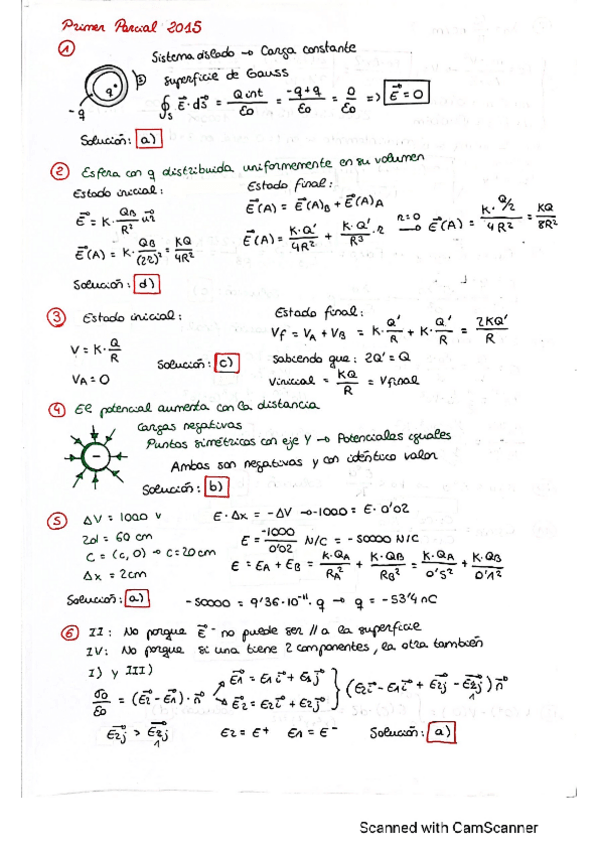 Primer Parcial 2015
① Sistema aislado → Carga constante
Superficie de Gauss
q
-q
∮s E⃗·dS⃗ = Q int/ε0 = -q+q/ε0 = 0/ε0 => E⃗ = 0
Solución: a)
② Esfera con q distribuida uniformemente en su volumen
Estado inicial: Estado final:
E⃗(A) = E⃗(A)B + E⃗(A)A
E⃗ = K· QB/R² u⃗r
E⃗(A) = K· QB/(2R)² = KQ/4R² E⃗(A) = K·Q'/4R² + K·Q'/R³ ·r r=0 → E⃗(A) = K·Q/2/4R² = KQ/8R²
Solución: d)
③ Estado inicial: Estado final:
Vf = VA + VB = K· Q'/R + K· Q'/R = 2KQ'/R
V = K· Q/R Solución: c) Sabiendo que: 2Q' = Q
VA = 0 Vinicial = KQ/R = Vfinal
④ El potencial aumenta con la distancia
Cargas negativas
Puntos simétricos con eje Y → Potenciales iguales
Ambas son negativas y con idéntico valor
Solución: b)
⑤ ΔV = 1000 V E·Δx = -ΔV → -1000 = E·0'02
2d = 60 cm E = -1000/0'02 N/C = -50000 N/C
C = (c, 0) → c = 20 cm
Δx = 2cm E = EA + EB = K·QA/RA² + K·QB/RB² = K·QA/0'5² + K·QB/0'1²
Solución: a) -50000 = 9'36·10⁻¹¹·q → q = -53'4 nC
⑥ II: No porque E⃗ no puede ser // a la superficie
IV: No porque si una tiene 2 componentes, la otra también
I) y III)
σ0/ε0 = (E⃗2 - E⃗1)·n⃗ E⃗1 = E1i⃗ + E1j⃗ E⃗2 = E2i⃗ + E2j⃗ } (E2i⃗ - E1i⃗ + E2j⃗ - E⃗2j1) n⃗
E2j⃗ > E⃗2j1 E2 = E⁺ E1 = E⁻ Solución: a)
Scanned with CamScanner